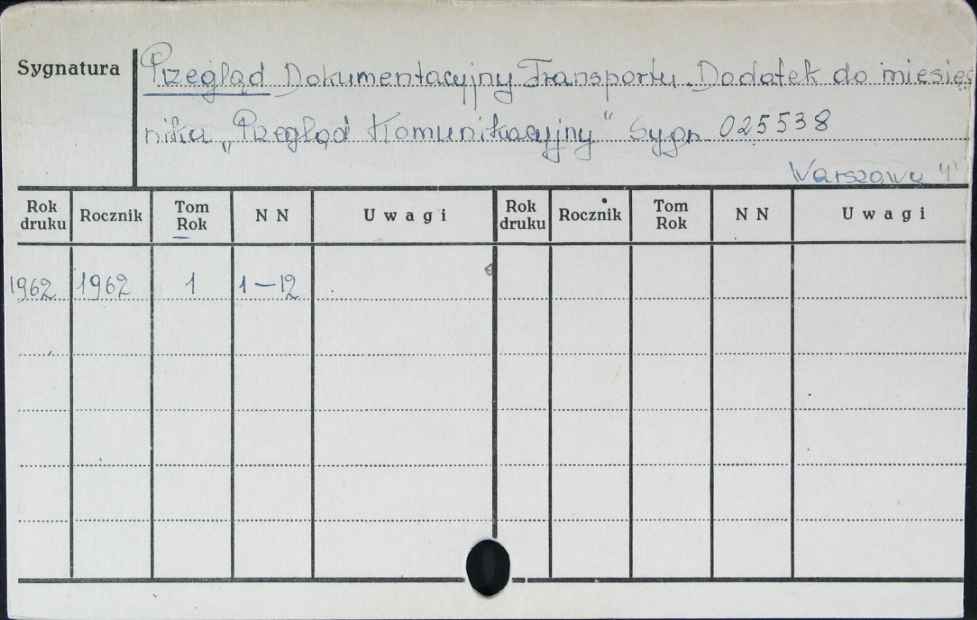 Sygnatura Przegląd Dokumentacyjny Transportu. Dodatek do miesięcz
nika „Przegląd Komunikacyjny" Sygn. 025538
Warszawa
Rok druku Rocznik Tom Rok N N Uwagi Rok druku Rocznik Tom Rok N N Uwagi
1962 1962 1 1-12